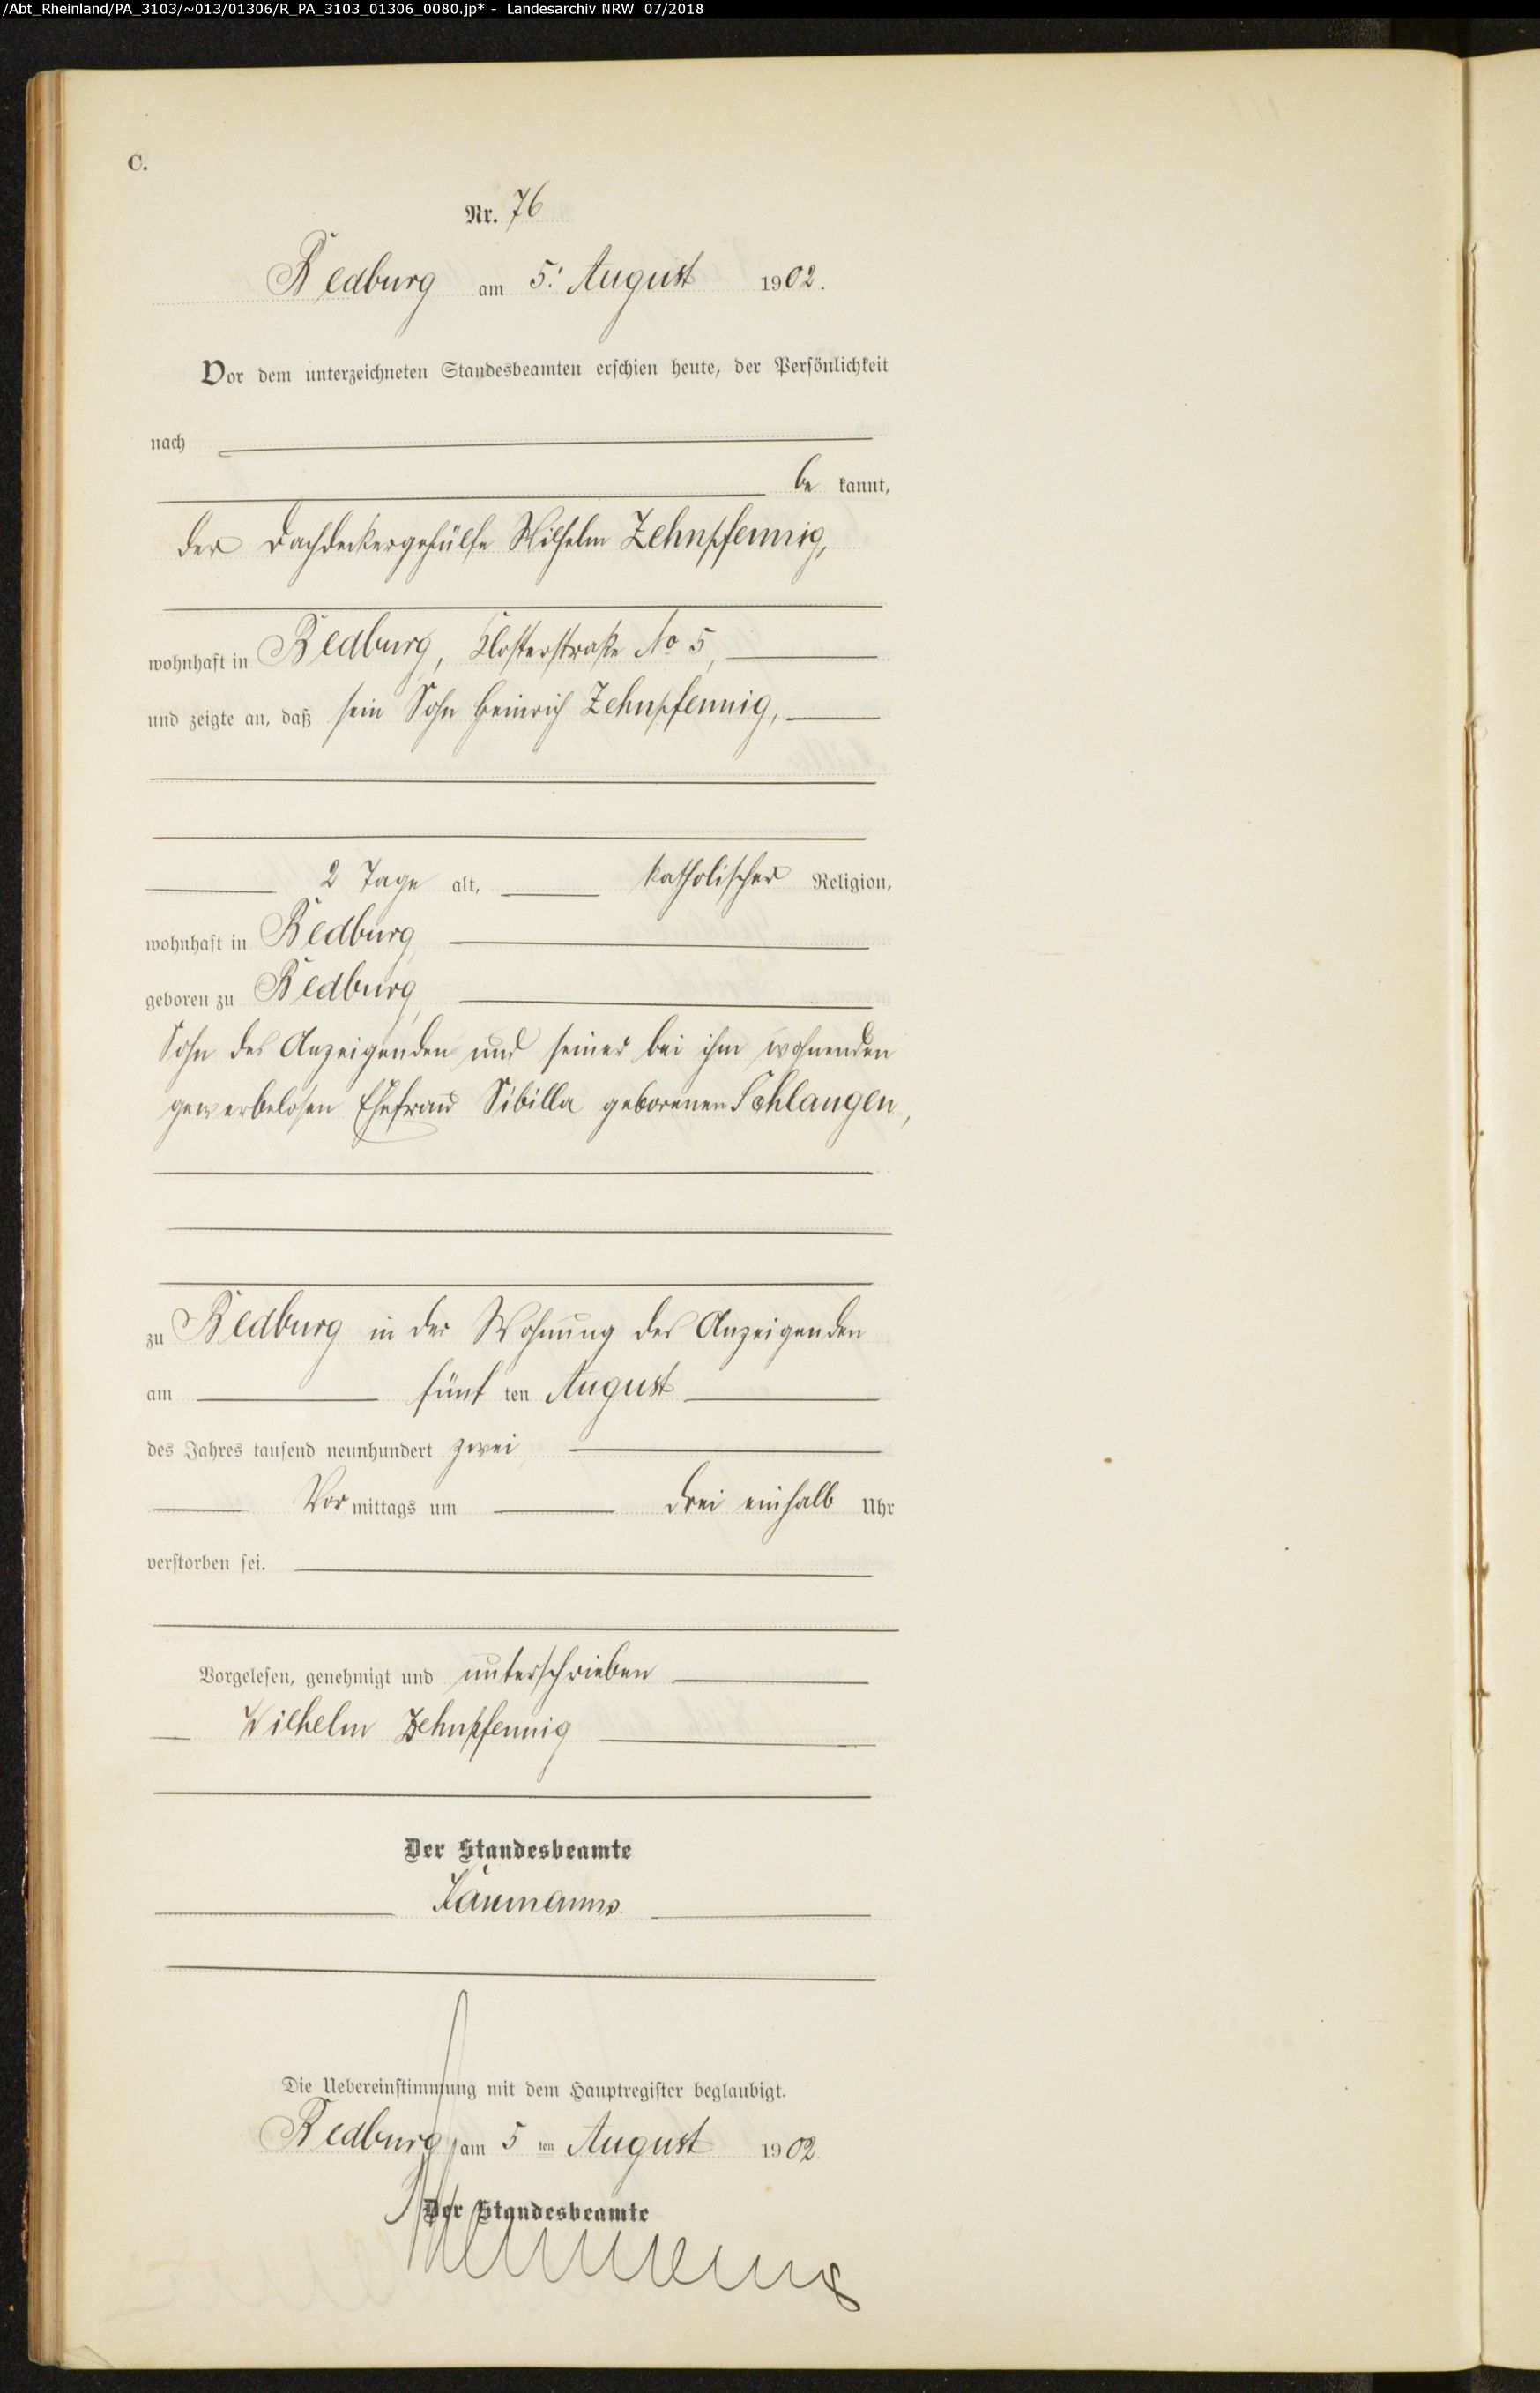 /Abt_Rheinland/PA_3103/~013/01306/R_PA_3103_01306_0080.jp* - Landesarchiv NRW 07/2018
C.
Nr. 76
Bedburg am 5. August 1902.
Vor dem unterzeichneten Standesbeamten erschien heute, der Persönlichkeit
nach
be kannt,
der Dachdeckergehülfe Wilhelm Zehnpfennig,
wohnhaft in Bedburg, Klosterstraße No 5,
und zeigte an, daß sein Sohn Heinrich Zehnpfennig,
2 Tage alt, katholischer Religion,
wohnhaft in Bedburg,
geboren zu Bedburg,
Sohn des Anzeigenden und seiner bei ihm wohnenden
gewerbelosen Ehefrau Sibilla geborenen Schlangen,
zu Bedburg in der Wohnung des Anzeigenden
am fünf ten August
des Jahres tausend neunhundert zwei
Vor mittags um drei einhalb Uhr
verstorben sei.
Vorgelesen, genehmigt und unterschrieben
Wilhelm Zehnpfennig
Der Standesbeamte
Die Uebereinstimmung mit dem Hauptregister beglaubigt.
Bedburg am 5 ten August 1902.
Der Standesbeamte